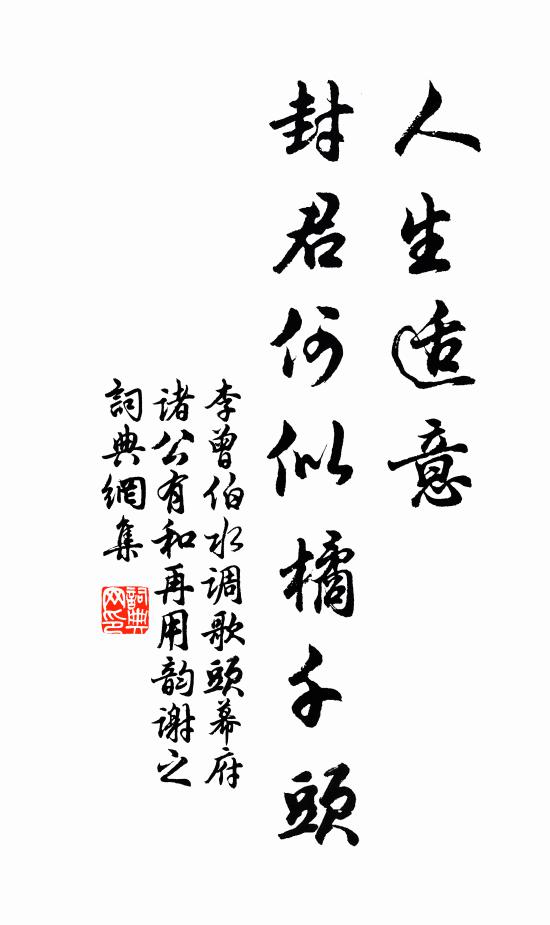 人生适意
封君何似橘千頭
李曾伯水调歌頭幕府
诸公有和再用韵谢之
詞典網集
詞典网印